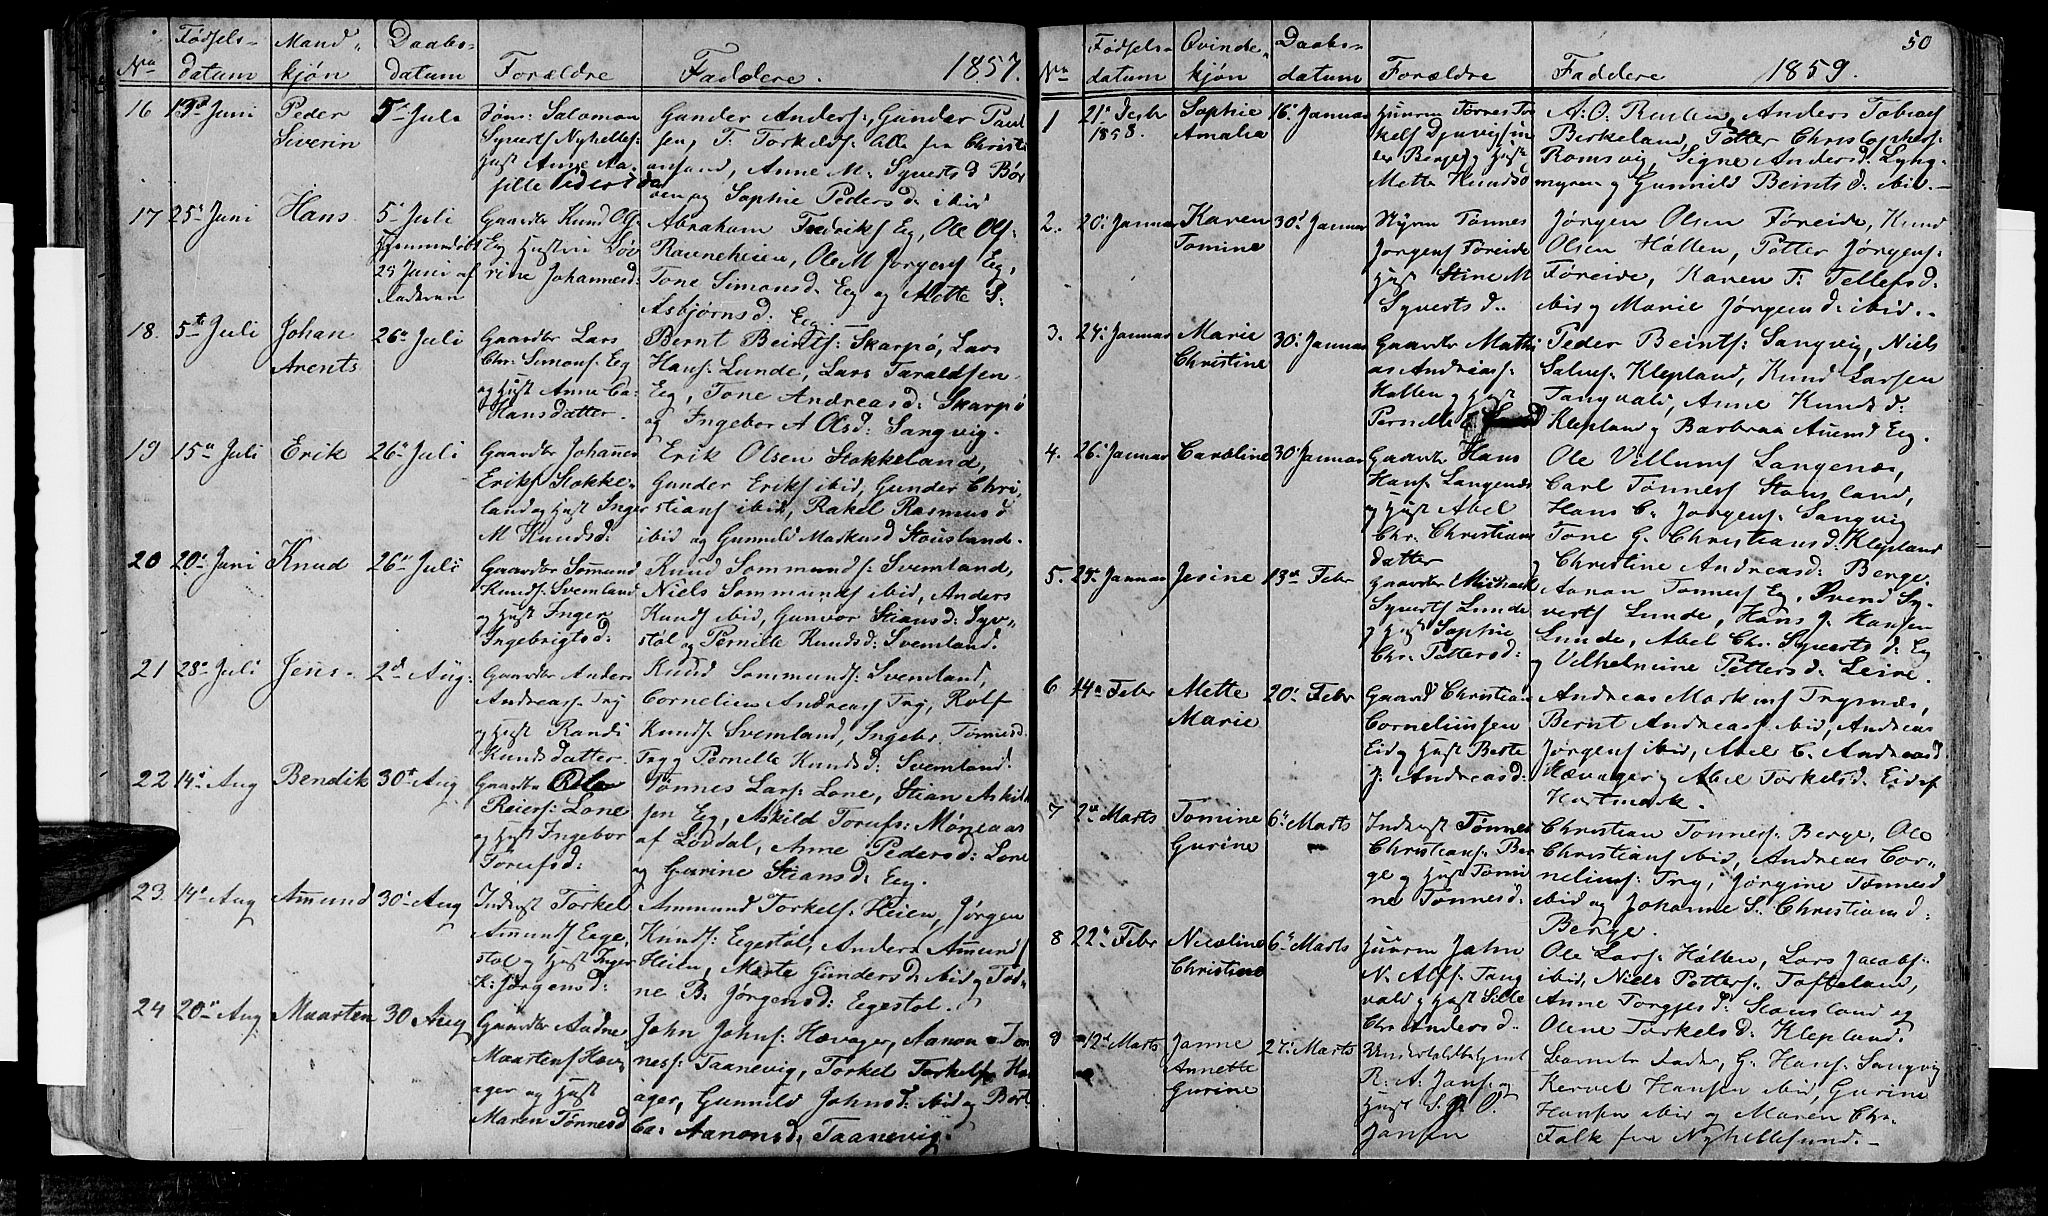 No Fødsels- datum Mand- kjøn Daabs- datum Forældre Faddere. 1857.
16 13d Juni Peder Siverin 5te Juli
Jøns: Salomon
Syverts Nyhellef:
Hust Anne Aa-
sille Pedersda
Gunder Anders:, Gunder Paul
sen, T. Torkelds: Alle fra Christi
ansand, Anne M. Syverts d Bør
øen og Sophie Peders d. ibid
17 25d Juni Hans 5d Juli
Hjemmedøbt
29 Juni af
Gaardbr Knud Ols
Eg Hustru Lov
rine Johannesd:
Abraham Fredriks Eg, Ole Ols:
Ravneheien, Ole M Jørgens Eg,
Tone Simonsd. Eg og Mette S:
Asbjørnsd: Eg. —
18. 5te Juli Johan Arents 26de Juli
Gaardbr Lars
Chr: Simons: Eg
og Hust Anne Ca:
Hansdatter.
Bernt Beints: Skarpø, Lars
Hans: Lunde, Lars Taraldsen
Eg, Tone Andreasd: Skarpø
og Ingebor A Olsd: Sangvig.
19 15de Juli Erik 26de Juli
Gaardbr Johannes
Eriks Stokke-
land og Hust Inger
M Knudsd:
Erik Olsen Stokkeland,
Gunder Eriks ibid, Gunder Chri
stians ibid, Rakel Rasmusd
ibid og Gunnild Markusd Stousland.
20 20d Juni Knud 26de Juli
Gaardbr Sommund
Knuds: Svemland
og Hust Inger
Ingebrigtsd:
Knud Sommunds: Svemland,
Niels Sommunds ibid, Anders
Knuds ibid, Gunvor Stiansd: Syv-
støl og Pernille Knudsd: Svemland.
21 28de Juli Jens 2d Aug:
Gaardbr Anders
Andreas: Try
og Hust Randi
Knudsdatter
Knud Sommunds: Svemland,
Cornelius Andreas Try, Rolf
Knuds: Svemland, Ingebr. Tønnesd.
Try og Pernille Knudsd: Svemland.
22 14d Aug Bendik 30te Aug
Gaardbr Ole
Reiers: Lone
og Hust Ingebor
Torufsd:
Tønnes Lars: Lone, Stian Askild
sen Eg, Askild Torufs: Moneaas
af Loddal, Anne Pedersd: Lone
og Gurine Stiansd: Eg.
23. 14d Aug Amund 30d Aug
Indhust Torkel
Amunds Eege-
støl og Hust Inger
K: Jørgensd:
Ammund Torkels: Heien, Jørgen
Knuds: Eegestøl, Anders Amunds
Heien, Merte Gundersd: ibid og Tod-
ne B. Jørgensd: Egestøl.
24 20de Aug Maarten 30 Aug
Gaardbr Aadne
Maartens Hæv-
ager og Hust
Maren Tønnesd
John Johns: Hævager, Aanon Tøn
ness: Taanevig, Torkel Torkels Hæv
ager, Gunnild Johnsd: ibid og Bert
Ca: Aanonsd: Taanevig.
50
No Fødsels- datum Qvinde- kjøn Daabs- datum Forældre Faddere 1859.
1 21d Decbr 1858. Sophie Amalia 16d Januar
Huusm Tønnes Tor
kels
Berge og Hust
Mette Knudsd
Anders Tobias
Berkeland, Petter Christophers:
Romsvig, Signe Andersd. Lyng-
myren og Gunnild Beintsd: ibid. —
2. 20d Januar Karen Tomine 30d Januar
Tønnes
Jørgens Føreide
Hust Stine M
Syvertsd.
Jørgen Olsen Føreide, Knud
Olsen Høllen, Petter Jørgens:
Føreide, Karen T. Tellefsd.
ibid og Marie Jørgensd: ibid. —
3. 24d Januar Marie Christine 30d Januar
Gaardbr Mathi
as Andreas:
Høllen og Hust
Pernille
Peder Beints: Sangvig, Niels
Salves: Klepland, Knud Larsen
Tangvald, Anne Knudsd:
Klepland og Barbraa Auensd Eg.
4. 26d Januar Caroline 30d Januar
Gaardbr Hans
Hans: Langenæs
og Hust Abel
Chr. Christians
datter
Ole Villums Langenæs,
Carl Tønnes Stousland,
Hans C. Jørgens: Sangvig
Tone G. Christiansd: Klepland
og Christine Andreasd: Berge.
5. 25d Januar Jesine 13de Febr
Gaardbr Michael
Syverts Lunde
og Hust Sophie
Chr. Pettersd:
Aanon Tønnes Eg, Svend Sy-
verts Lunde, Hans J. Hansen
Lunde, Abel Chr. Syvertsd: Eg
og Vilhelmine Pettersd: Leire.
6 14de Febr Mette Marie 20d Febr
Gaardb Christian
Corneliussen
Eid og Hust Berte
J. Andreasd:
Andreas Markus Trysnæs,
Bernt Andreas ibid, Andreas
Jørgens ibid, Abel C. Andreasd
Hævager og Abel Torkelsd: Eid af
Hartmark.
7 2de Marts Tomine Gurine 6d Marts
Indhust Tønnes
Christians: Ber
ge og Hust Tomi
ne Tønnesd:
Christian Tønnes: Berge, Ole
Christians ibid, Andreas Cor-
nelius: Try, Jørgine Tønnesd
ibid og Johanne S. Christiansd:
Berge.
8 22d Febr Nicoline Christine 6d Marts
Huusm John
N. Alfs: Tang
vald og Hust Sille
Chr. Andersd.
Ole Lars: Høllen, Lars Jacobs:
ibid, Niels Petters: Toftelam,
Anne Torgjesd: Stousland og
Olene Torkelsd: Klepland.
9 12d Marts Janne Annette Gurine 27d Marts
R. A. Jans: og
Hust S. P. T.
Jansen
Barnets Fader, G. Hans: Sangvig
Hansen ibid, Gurine
Hansen ibid og Maren Chr.
Falk fra Nyhellesund. —